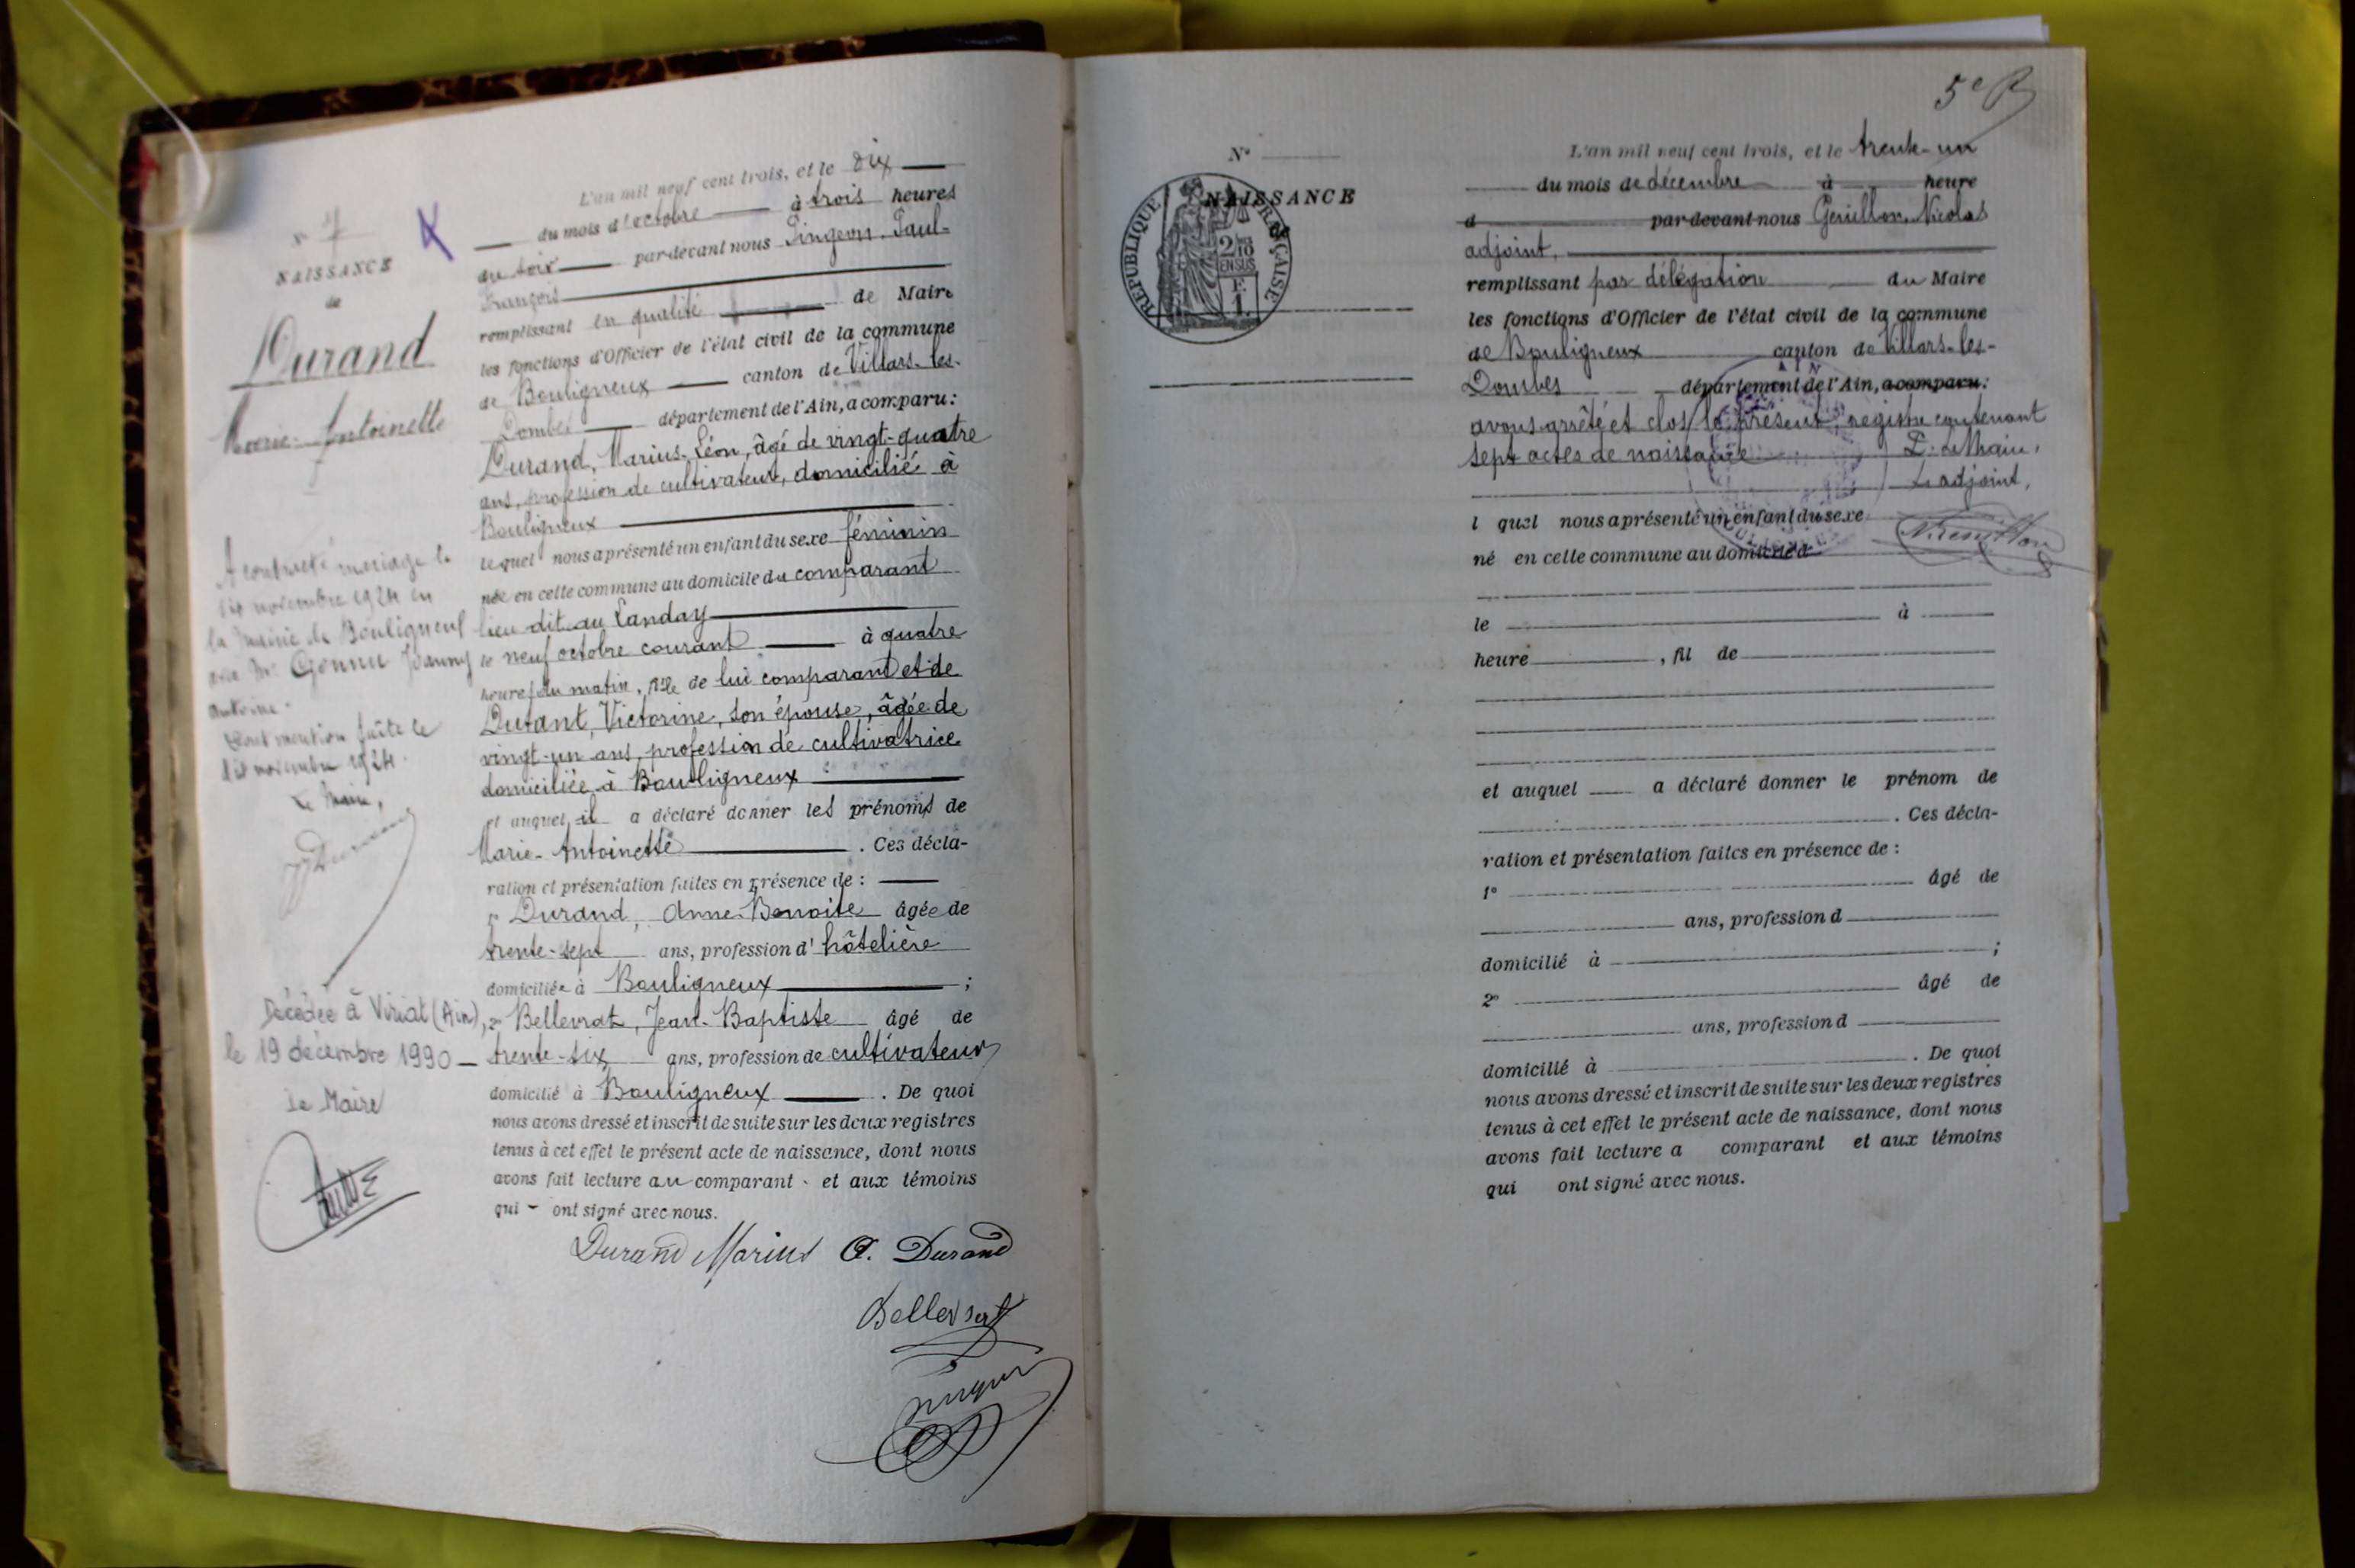 N° 7
NAISSANCE
de
Durand
Marie-Antoinette
A contracté mariage le
dix novembre 1924 en
la mairie de Bouligneux
avec Mr Joanny
Antoine.
mention faite le
dix novembre 1924.
Le Maire,
Décédée à Viriat (Ain),
le 19 décembre 1990
Le Maire
L'an mil neuf cent trois, et le dix
du mois d'octobre à trois heures
du soir par-devant nous Pingeon, Paul-
François
remplissant en qualité de Maire
les fonctions d'Officier de l'état civil de la commune
de Bouligneux canton de Villars-les-
Dombes département de l'Ain, a comparu:
Durand, Marius-Léon, âgé de vingt-quatre
ans, profession de cultivateur, domicilié à
Bouligneux
lequel nous a présenté un enfant du sexe féminin
née en cette commune au domicile du comparant
lieu dit au Tanday
le neuf octobre courant à quatre
heures du matin, fille de lui comparant et de
Durant, Victorine, son épouse, âgée de
vingt-un ans, profession de cultivatrice
domiciliée à Bouligneux
et auquel il a déclaré donner les prénoms de
Marie-Antoinette. Ces décla-
ration et présentation faites en présence de :
1° Durand, Anne-Benoite âgée de
trente-sept ans, profession d'hôtelière
domiciliée à Bouligneux ;
2° Bellevrat, Jean-Baptiste âgé de
trente-six ans, profession de cultivateur
domicilié à Bouligneux. De quoi
nous avons dressé et inscrit de suite sur les deux registres
tenus à cet effet le présent acte de naissance, dont nous
avons fait lecture au comparant et aux témoins
qui ont signé avec nous.
Durand Marius A. Durand
Bellevrat
5e
N°
NAISSANCE
de
REPUBLIQUE FRANÇAISE
2/10
EN SUS
F.
1.
L'an mil neuf cent trois, et le trente-un
du mois de décembre à heure
d par-devant nous Genillon, Nicolas
adjoint,
remplissant par délégation du Maire
les fonctions d'Officier de l'état civil de la commune
de Bouligneux canton de Villars-les-
Dombes département de l'Ain, a comparu:
avons arrêté et clos le présent registre contenant
sept actes de naissance P. le Maire,
L'adjoint,
l quel nous a présenté un enfant du sexe
né en cette commune au domicile d
le à
heure , fil de
et auquel a déclaré donner le prénom de
. Ces décla-
ration et présentation faites en présence de :
1° âgé de
ans, profession d
domicilié à ;
2° âgé de
ans, profession d
domicilié à . De quoi
nous avons dressé et inscrit de suite sur les deux registres
tenus à cet effet le présent acte de naissance, dont nous
avons fait lecture a comparant et aux témoins
qui ont signé avec nous.